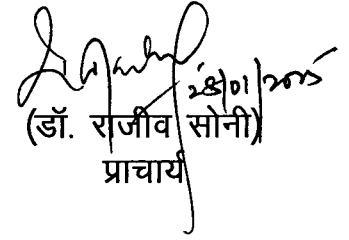 28/01/2025
(डॉ. राजीव सोनी)
प्राचार्य